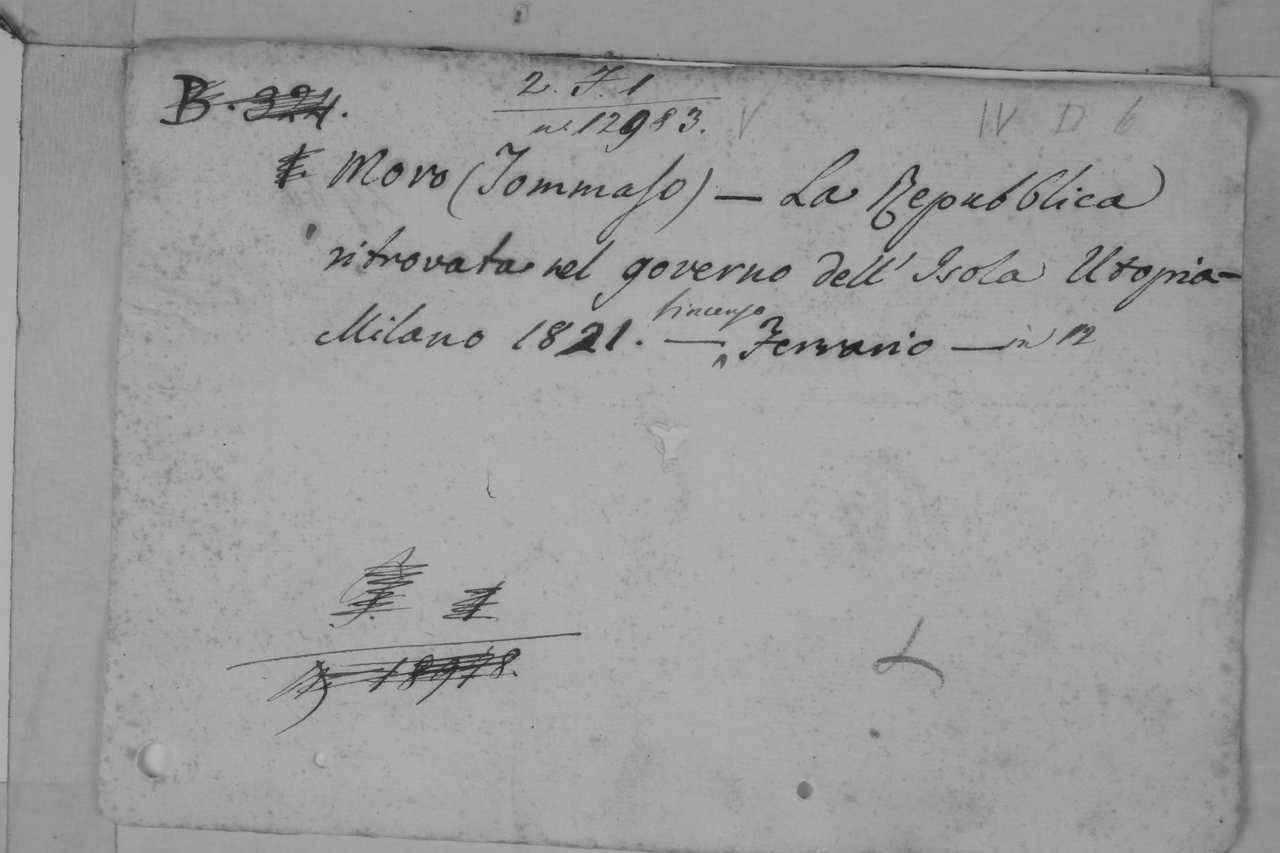 B. 324.
2. F. 1
n.º 12983. V
IV D 6
Moro (Tommaso) — La Repubblica
ritrovata nel governo dell' Isola Utopia —
Milano 1821. — Vincenzo Ferrario — in 12